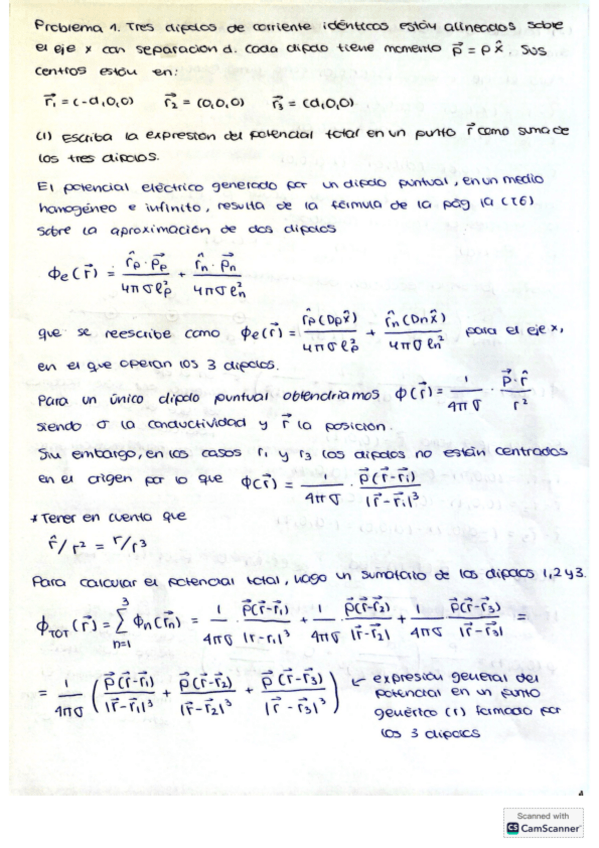 Problema 1. Tres dipolos de corriente idénticos están alineados sobre
el eje x con separación d. Cada dipolo tiene momento p⃗ = p x̂. Sus
centros están en:
r⃗₁ = (-d,0,0) r⃗₂ = (0,0,0) r⃗₃ = (d,0,0)
(1) Escriba la expresión del potencial total en un punto r⃗ como suma de
los tres dipolos.
El potencial eléctrico generado por un dipolo puntual, en un medio
homogéneo e infinito, resulta de la fórmula de la pág 19 (T6)
sobre la aproximación de dos dipolos
Φe(r⃗) = r̂p · p⃗p / 4πσlp² + r̂n · p⃗n / 4πσln²
que se reescribe como Φe(r⃗) = r̂p(Dp x̂) / 4πσlp² + r̂n(Dn x̂) / 4πσln² para el eje x,
en el que operan los 3 dipolos.
Para un único dipolo puntual obtendríamos Φ(r⃗) = 1/4πσ · p⃗·r̂ / r²
siendo σ la conductividad y r⃗ la posición.
Sin embargo, en los casos r₁ y r₃ los dipolos no están centrados
en el origen por lo que Φ(r⃗) = 1/4πσ · p⃗(r⃗-r⃗i) / |r⃗-r⃗i|³
* Tener en cuenta que
r̂/r² = r⃗/r³
Para calcular el potencial total, hago un sumatorio de los dipolos 1,2 y 3.
Φ_TOT(r⃗) = Σ³ₙ₌₁ Φn(r⃗n) = 1/4πσ · p⃗(r⃗-r⃗₁) / |r-r₁|³ + 1/4πσ · p⃗(r⃗-r⃗₂) / |r⃗-r⃗₂| + 1/4πσ · p⃗(r⃗-r⃗₃) / |r⃗-r⃗₃| =
= 1/4πσ ( p⃗(r⃗-r⃗₁) / |r⃗-r⃗₁|³ + p⃗(r⃗-r⃗₂) / |r⃗-r⃗₂|³ + p⃗(r⃗-r⃗₃) / |r⃗-r⃗₃|³ ) ← expresión general del
potencial en un punto
genérico (r) formado por
los 3 dipolos
Scanned with
CS CamScanner